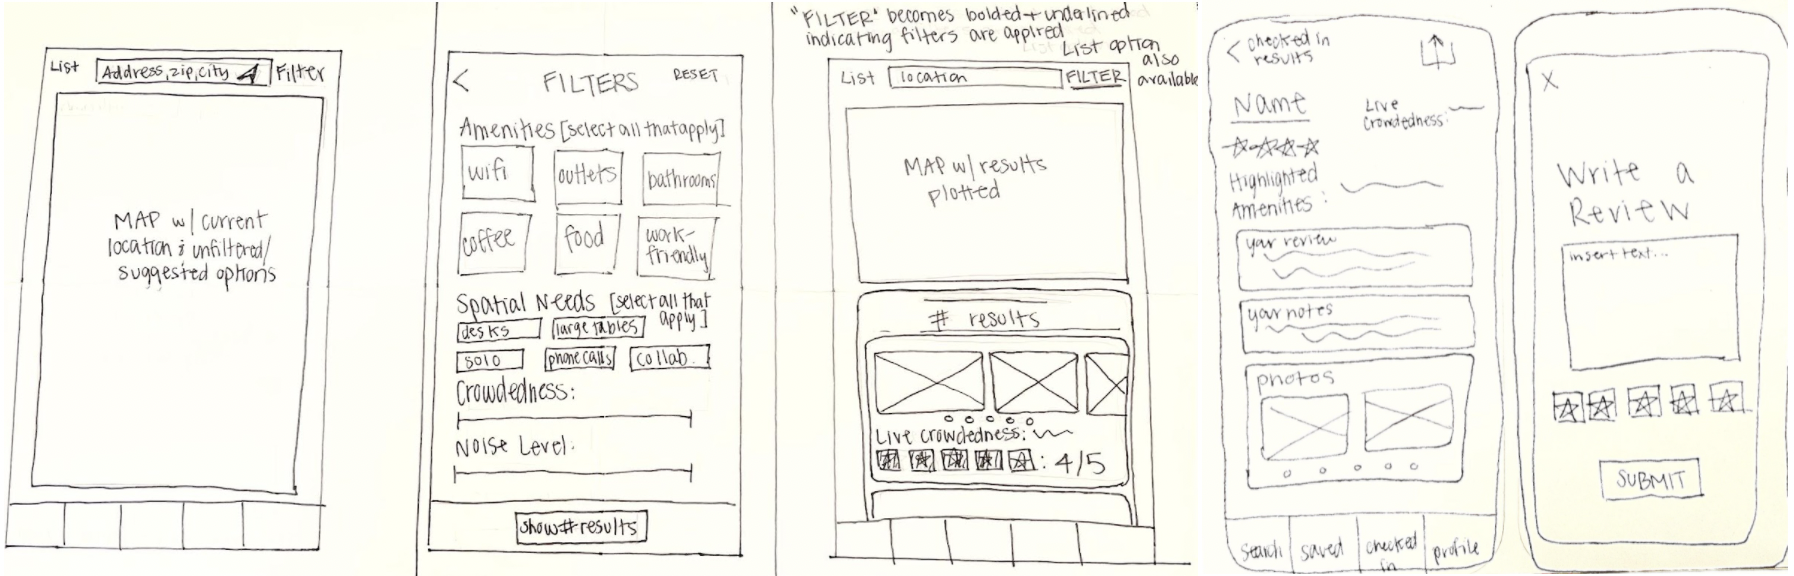 List
Address, zip, city
Filter
MAP w/ current
location & unfiltered/
suggested options
<
FILTERS
RESET
Amenities [select all that apply]
wifi
outlets
bathrooms
coffee
food
work-
friendly
Spatial Needs [select all that
apply]
desks
large tables
solo
phone calls
collab.
Crowdedness:
Noise Level:
show # results
"FILTER" becomes bolded + underlined
indicating filters are applied
List option
also
available
List
location
FILTER
MAP w/ results
plotted
# results
Live crowdedness:
: 4/5
< checked in
results
Name
Live
Crowdedness:
Highlighted
Amenities:
your review
your notes
photos
search
saved
checked
in
profile
X
Write a
Review
insert text...
SUBMIT